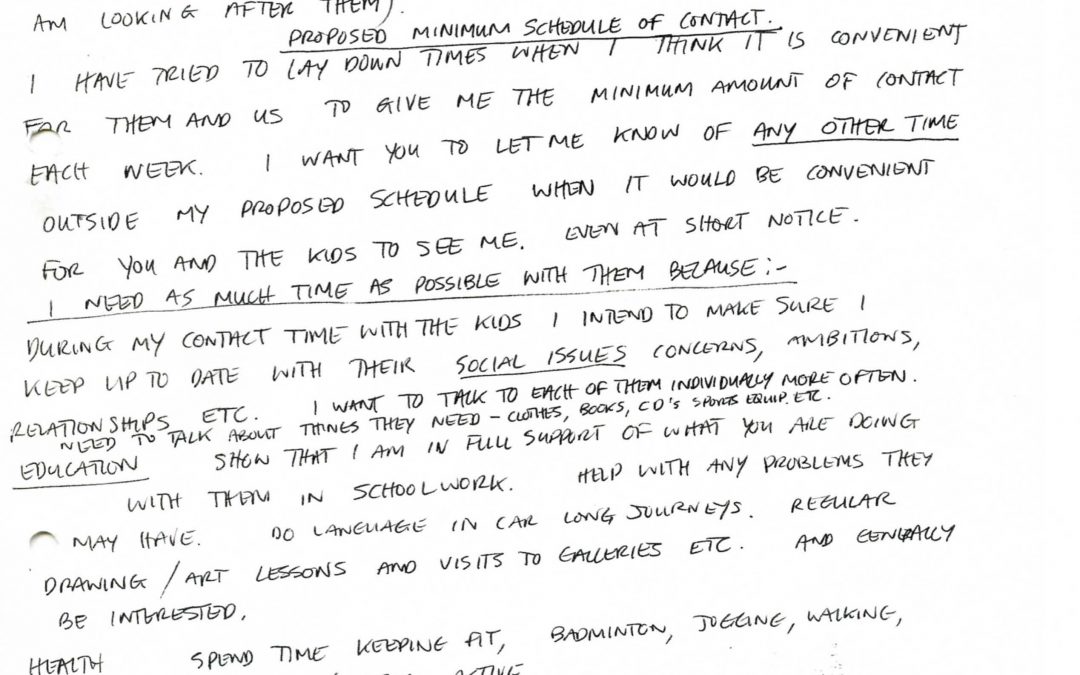 AM LOOKING AFTER THEM).
PROPOSED MINIMUM SCHEDULE OF CONTACT.
I HAVE TRIED TO LAY DOWN TIMES WHEN I THINK IT IS CONVENIENT
FOR THEM AND US TO GIVE ME THE MINIMUM AMOUNT OF CONTACT
EACH WEEK. I WANT YOU TO LET ME KNOW OF ANY OTHER TIME
OUTSIDE MY PROPOSED SCHEDULE WHEN IT WOULD BE CONVENIENT
FOR YOU AND THE KIDS TO SEE ME. EVEN AT SHORT NOTICE.
I NEED AS MUCH TIME AS POSSIBLE WITH THEM BECAUSE:-
DURING MY CONTACT TIME WITH THE KIDS I INTEND TO MAKE SURE I
KEEP UP TO DATE WITH THEIR SOCIAL ISSUES CONCERNS, AMBITIONS,
RELATIONSHIPS, ETC. I WANT TO TALK TO EACH OF THEM INDIVIDUALLY MORE OFTEN.
NEED TO TALK ABOUT THINGS THEY NEED - CLOTHES, BOOKS, CD'S SPORTS EQUIP. ETC.
EDUCATION SHOW THAT I AM IN FULL SUPPORT OF WHAT YOU ARE DOING
WITH THEM IN SCHOOLWORK. HELP WITH ANY PROBLEMS THEY
MAY HAVE. DO LANGUAGE IN CAR LONG JOURNEYS. REGULAR
DRAWING / ART LESSONS AND VISITS TO GALLERIES ETC. AND GENERALLY
BE INTERESTED.
HEALTH SPEND TIME KEEPING FIT, BADMINTON, JOGGING, WALKING,